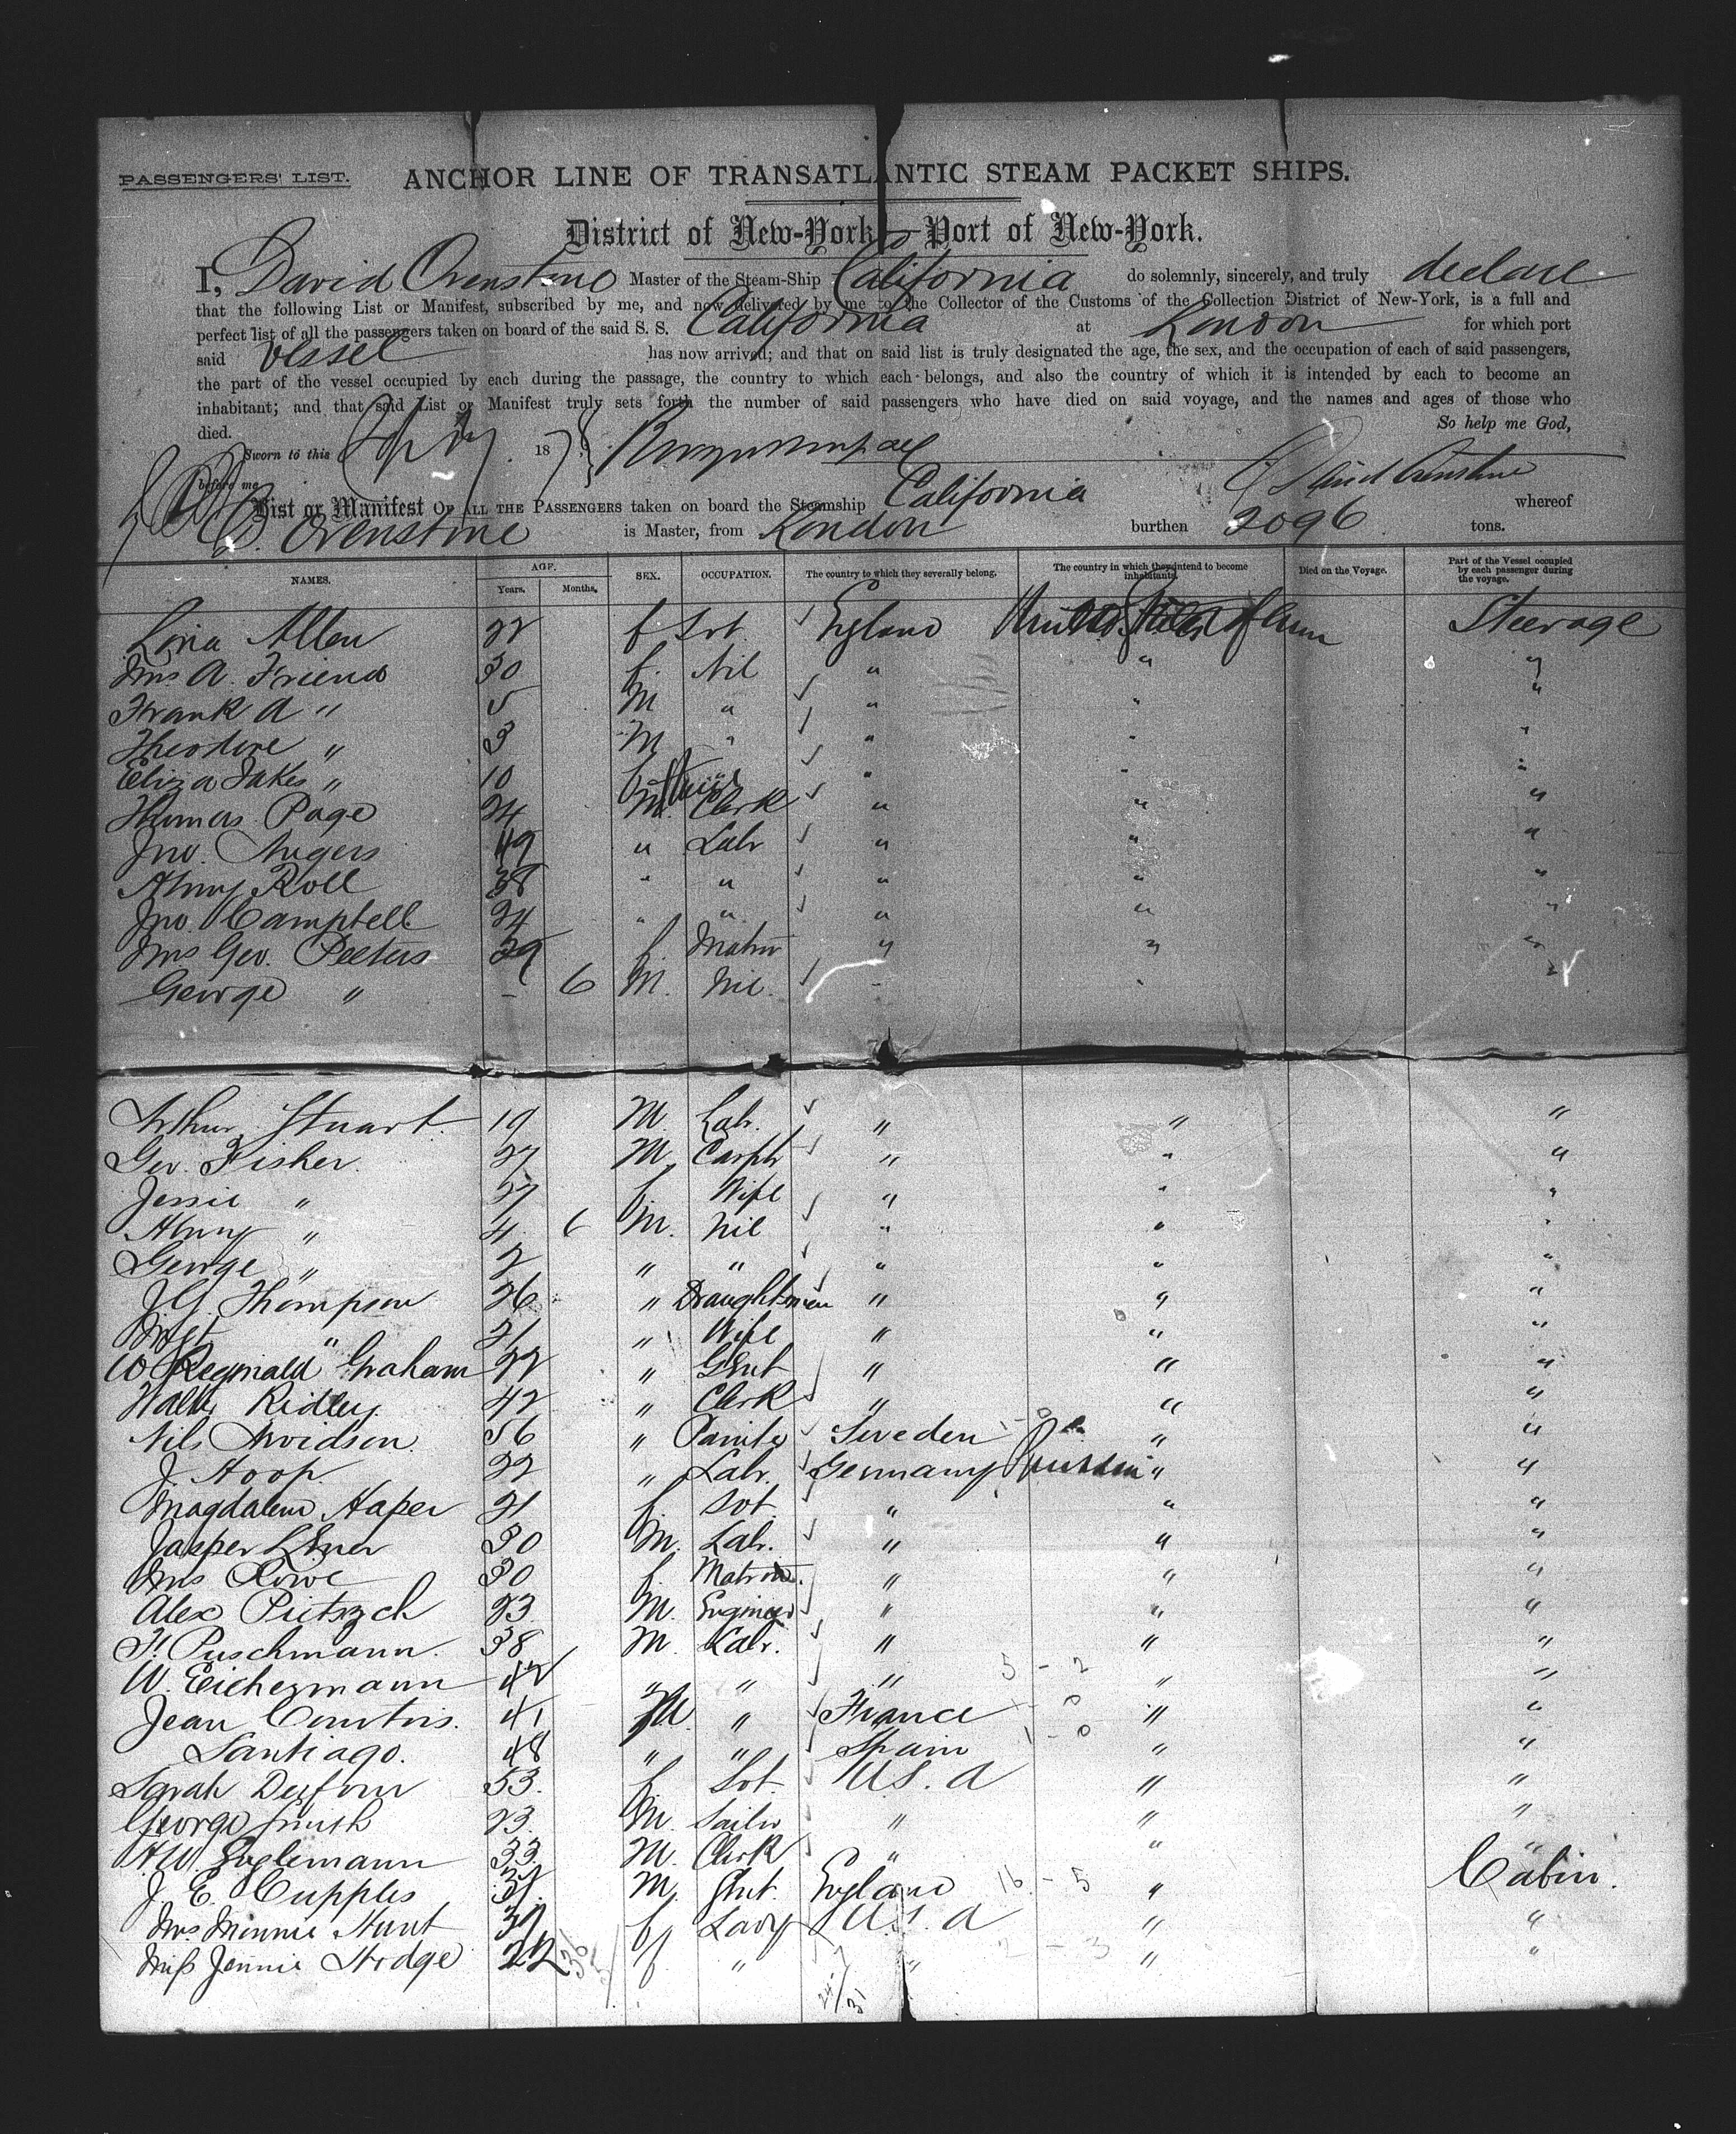 PASSENGERS' LIST. ANCHOR LINE OF TRANSATLANTIC STEAM PACKET SHIPS.
District of New-York—Port of New-York.
I, David Ovenstone Master of the Steam-Ship California do solemnly, sincerely, and truly declare
that the following List or Manifest, subscribed by me, and now delivered by me to the Collector of the Customs of the Collection District of New-York, is a full and
perfect list of all the passengers taken on board of the said S. S. California at London for which port
said vessel has now arrived; and that on said list is truly designated the age, the sex, and the occupation of each of said passengers,
the part of the vessel occupied by each during the passage, the country to which each belongs, and also the country of which it is intended by each to become an
inhabitant; and that said List or Manifest truly sets forth the number of said passengers who have died on said voyage, and the names and ages of those who
died. So help me God,
Sworn to this 187
before me David Ovenstone
List or Manifest OF ALL THE PASSENGERS taken on board the Steamship California whereof
D. Ovenstone is Master, from London burthen 2096 tons.
NAMES. AGE. Years. Months. SEX. OCCUPATION. The country to which they severally belong. The country in which they intend to become inhabitants. Died on the Voyage. Part of the Vessel occupied by each passenger during the voyage.
Allen 22 f Svt. England United States Steerage
Mrs A. Friend 30 f. Nil " " "
Frank A " 5 M " " " "
Theodore " 3 M " " " "
Eliza Jakes " 10 f " " "
Thomas Page 24 M. Clerk " " "
Jno. Angers 49 " Labr " " "
Henry Roll 38 " " " " "
Jno. Campbell 24 " " " " "
Mrs Geo. Peeters 29 f Matron " " "
George " - 6 M. Nil. " " "
Arthur Stuart 19 M. Labr. " " "
Geo. Fisher. 27 M. Carptr " " "
Jessie " 27 f. Wife " " "
Henry " 4 6 M. Nil " " "
George " 2 " " " " "
J.G. Thompson 26 " Draughtsman " " "
" 21 " Wife " " "
W Reginald Graham 22 " Gent " " "
Walter Ridley 42 " Clerk " " "
Nils Arvidson. 56 " Painter Sweden " "
J. Hoop 22 " Labr. Germany Prussia " "
Magdalena Haper 21 f. Svt " " "
Jasper 30 M. Labr. " " "
Mrs Rowe 30 f Matron. " " "
Alex Pietzsch 23 M. Engineer " " "
F. Puschmann. 38 M. Labr. " " "
W. Eichezmann 42 " " " 5 - 2 " "
Jean Courtois. 41 M " France - 0 " "
Santiago. 48 " " Spain 1 - 0 " "
Sarah Dufour 53. f Svt U.S.A " "
George Smith 23. M. Sailor " " "
H.W. Englemann 33. M. Clerk " " "
J. E. Cupples 31. M. Gent. England 16 - 5 " Cabin.
Mrs Minnie Hunt 39 f Lady U.S.A " "
Miss Jennie Hodge 22 f " " 2 - 3 " "
24/31